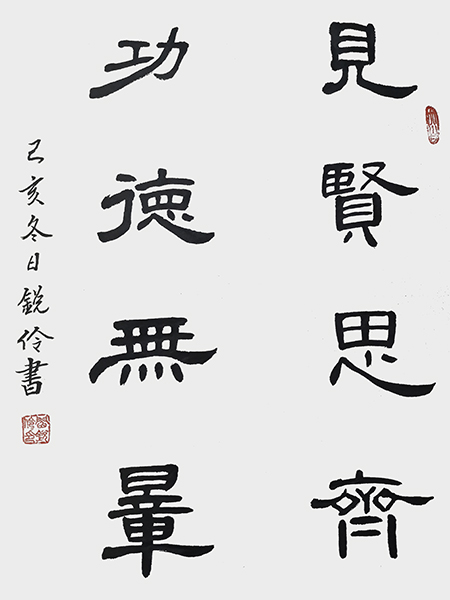 見賢思齊
功德無量
己亥冬日鋭伶書